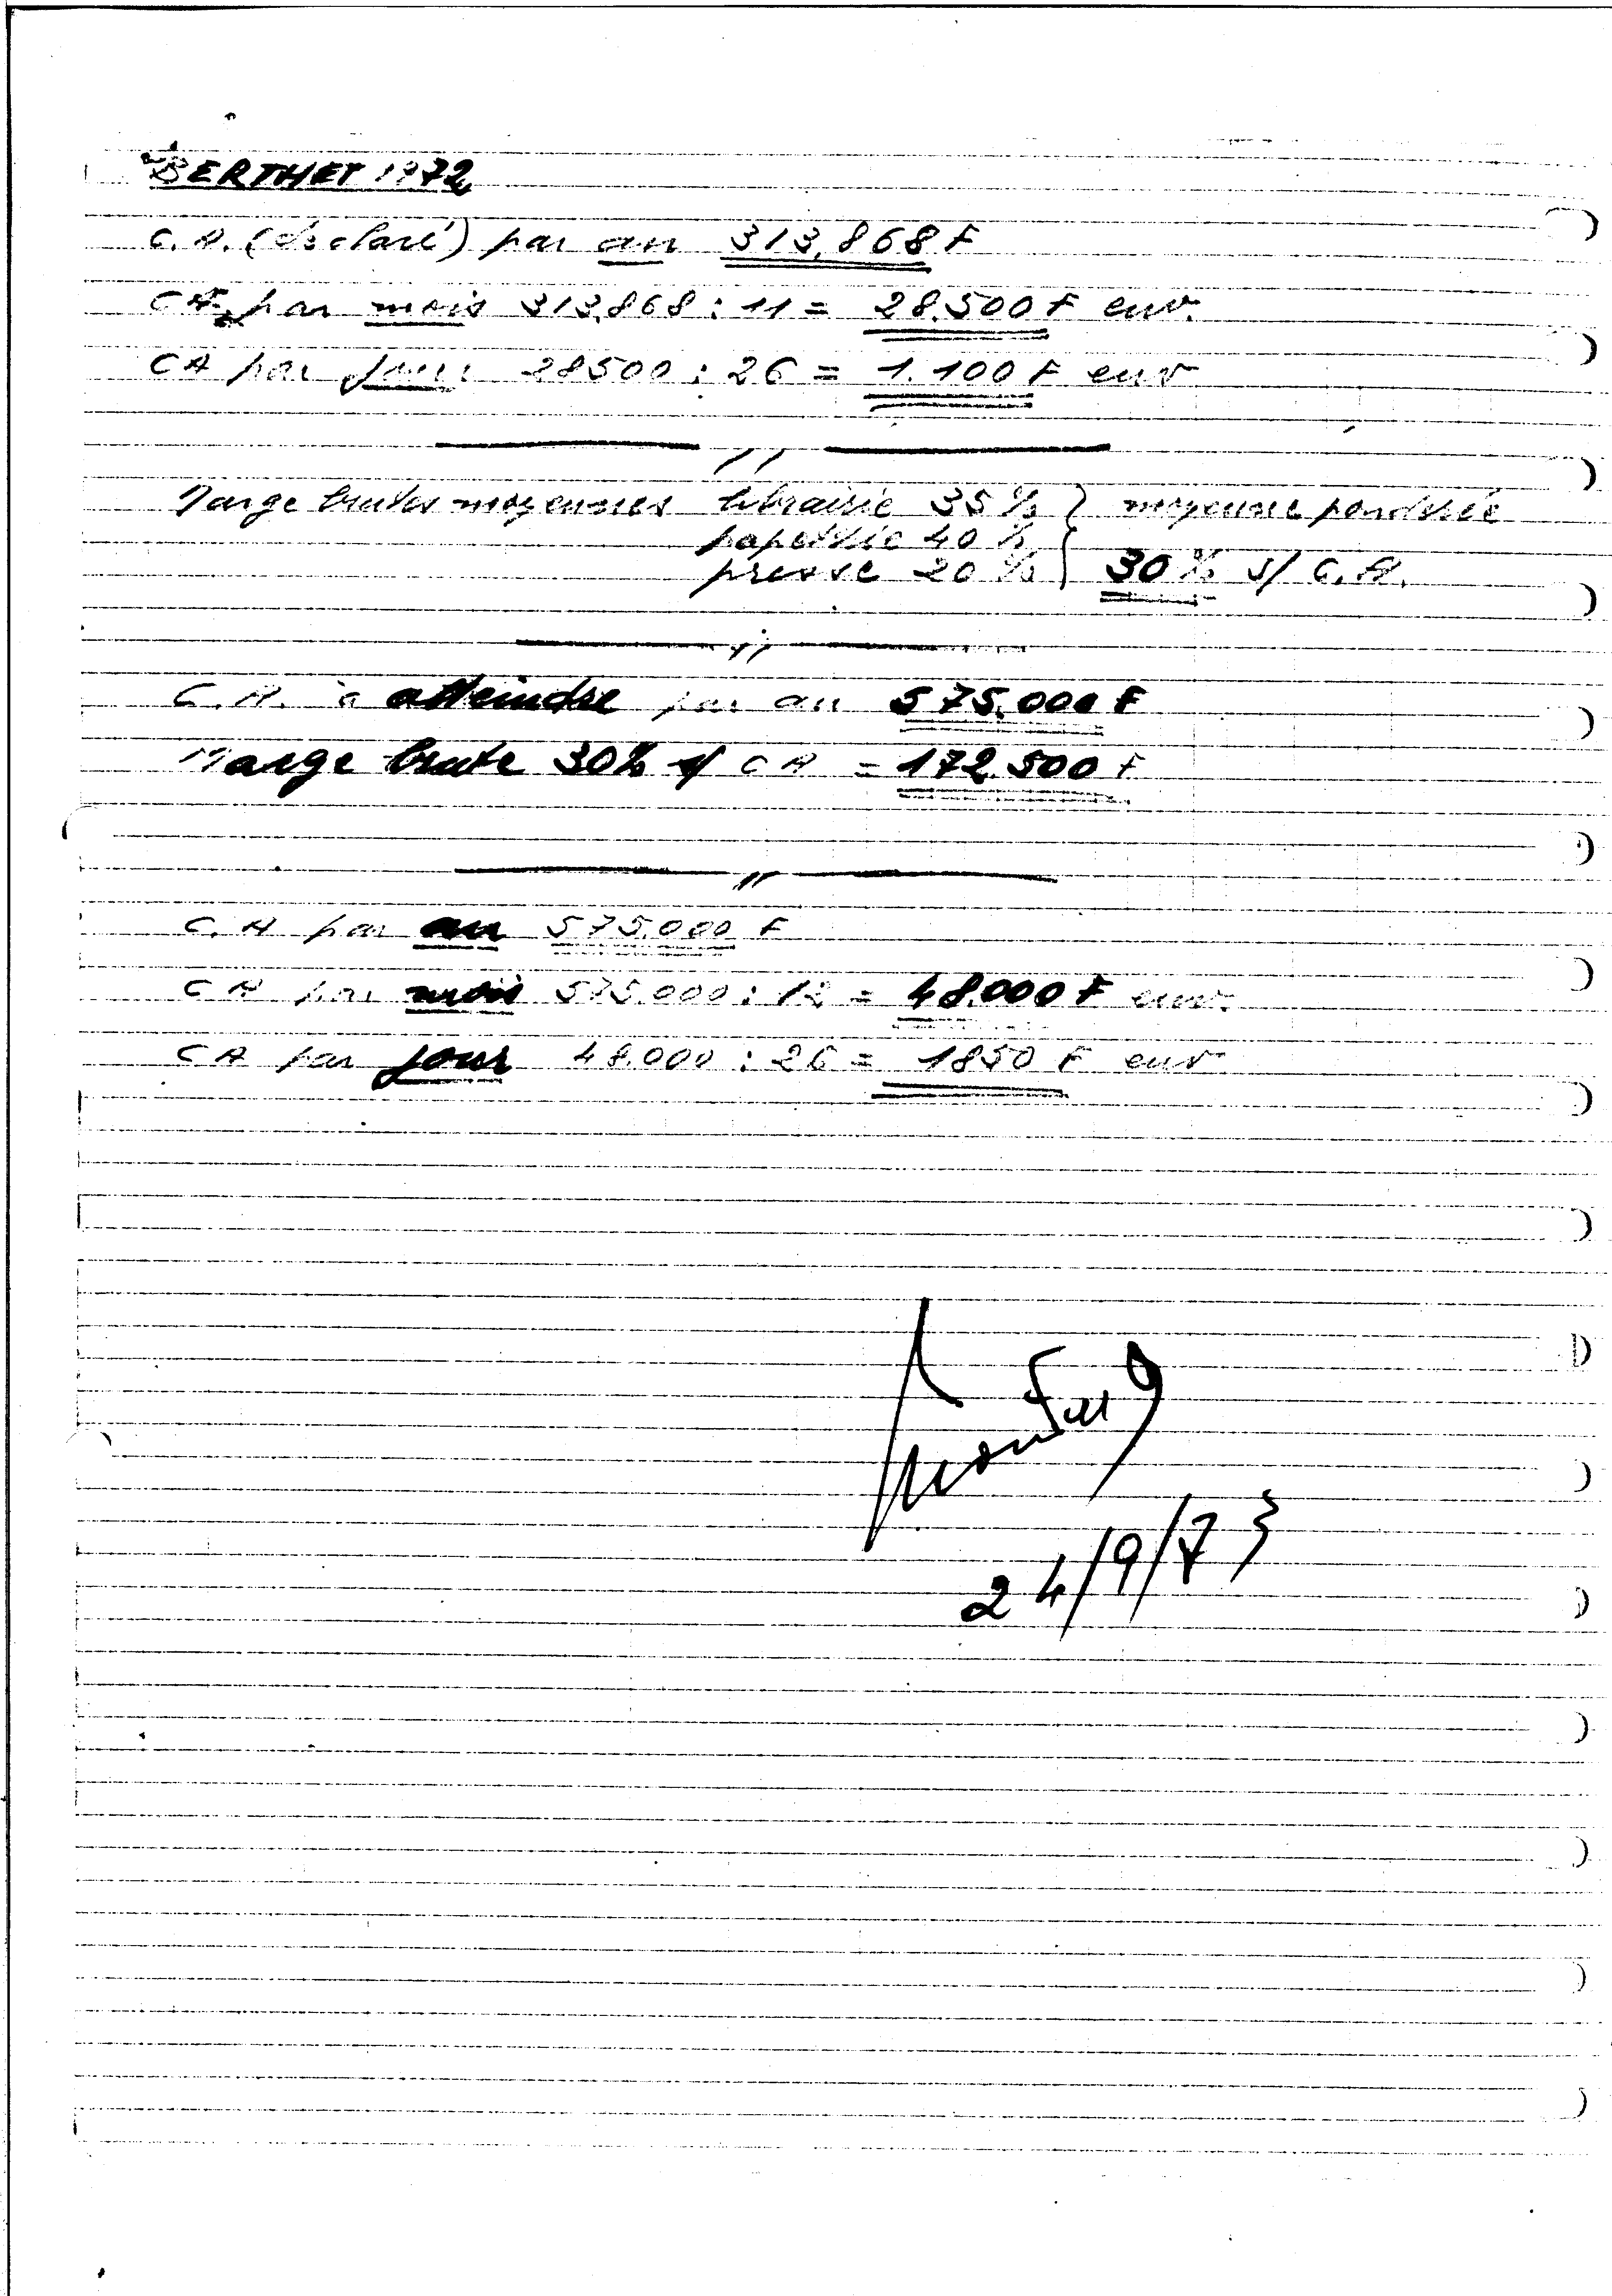 BERTHET 1972
C.A. (déclaré) par an 313.868 F
CA par mois 313.868 : 11 = 28.500 F env.
CA par jour 28500 : 26 = 1.100 F env
Marge brutes moyennes librairie 35 % } moyenne pondérée
papeterie 40 %
presse 20 % } 30 % s/ C.A.
C.A. à atteindre par an 575.000 F
Marge brute 30% s/ CA = 172.500 F
C.A par an 575.000 F
CA par mois 575.000 : 12 = 48.000 F env.
CA par jour 48.000 : 26 = 1850 F env
24/9/73